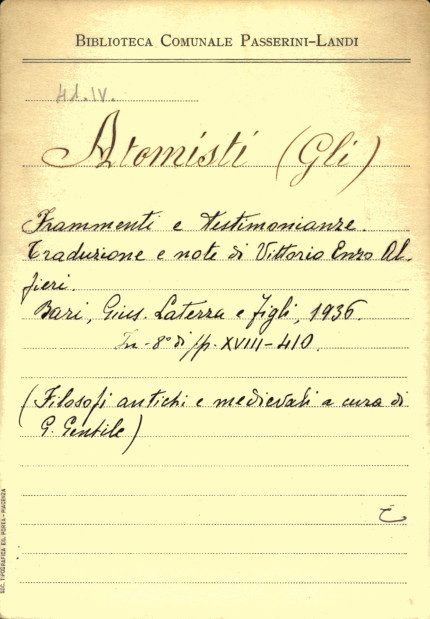 BIBLIOTECA COMUNALE PASSERINI-LANDI
41.IV.
Atomisti (Gli)
Frammenti e testimonianze.
Traduzione e note di Vittorio Enzo Al-
fieri.
Bari, Gius. Laterza e figli, 1936.
In-8° di pp. XVIII-410.
(Filosofi antichi e medievali a cura di
G. Gentile)
SOC. TIPOGRAFICA ED. PORTA - PIACENZA